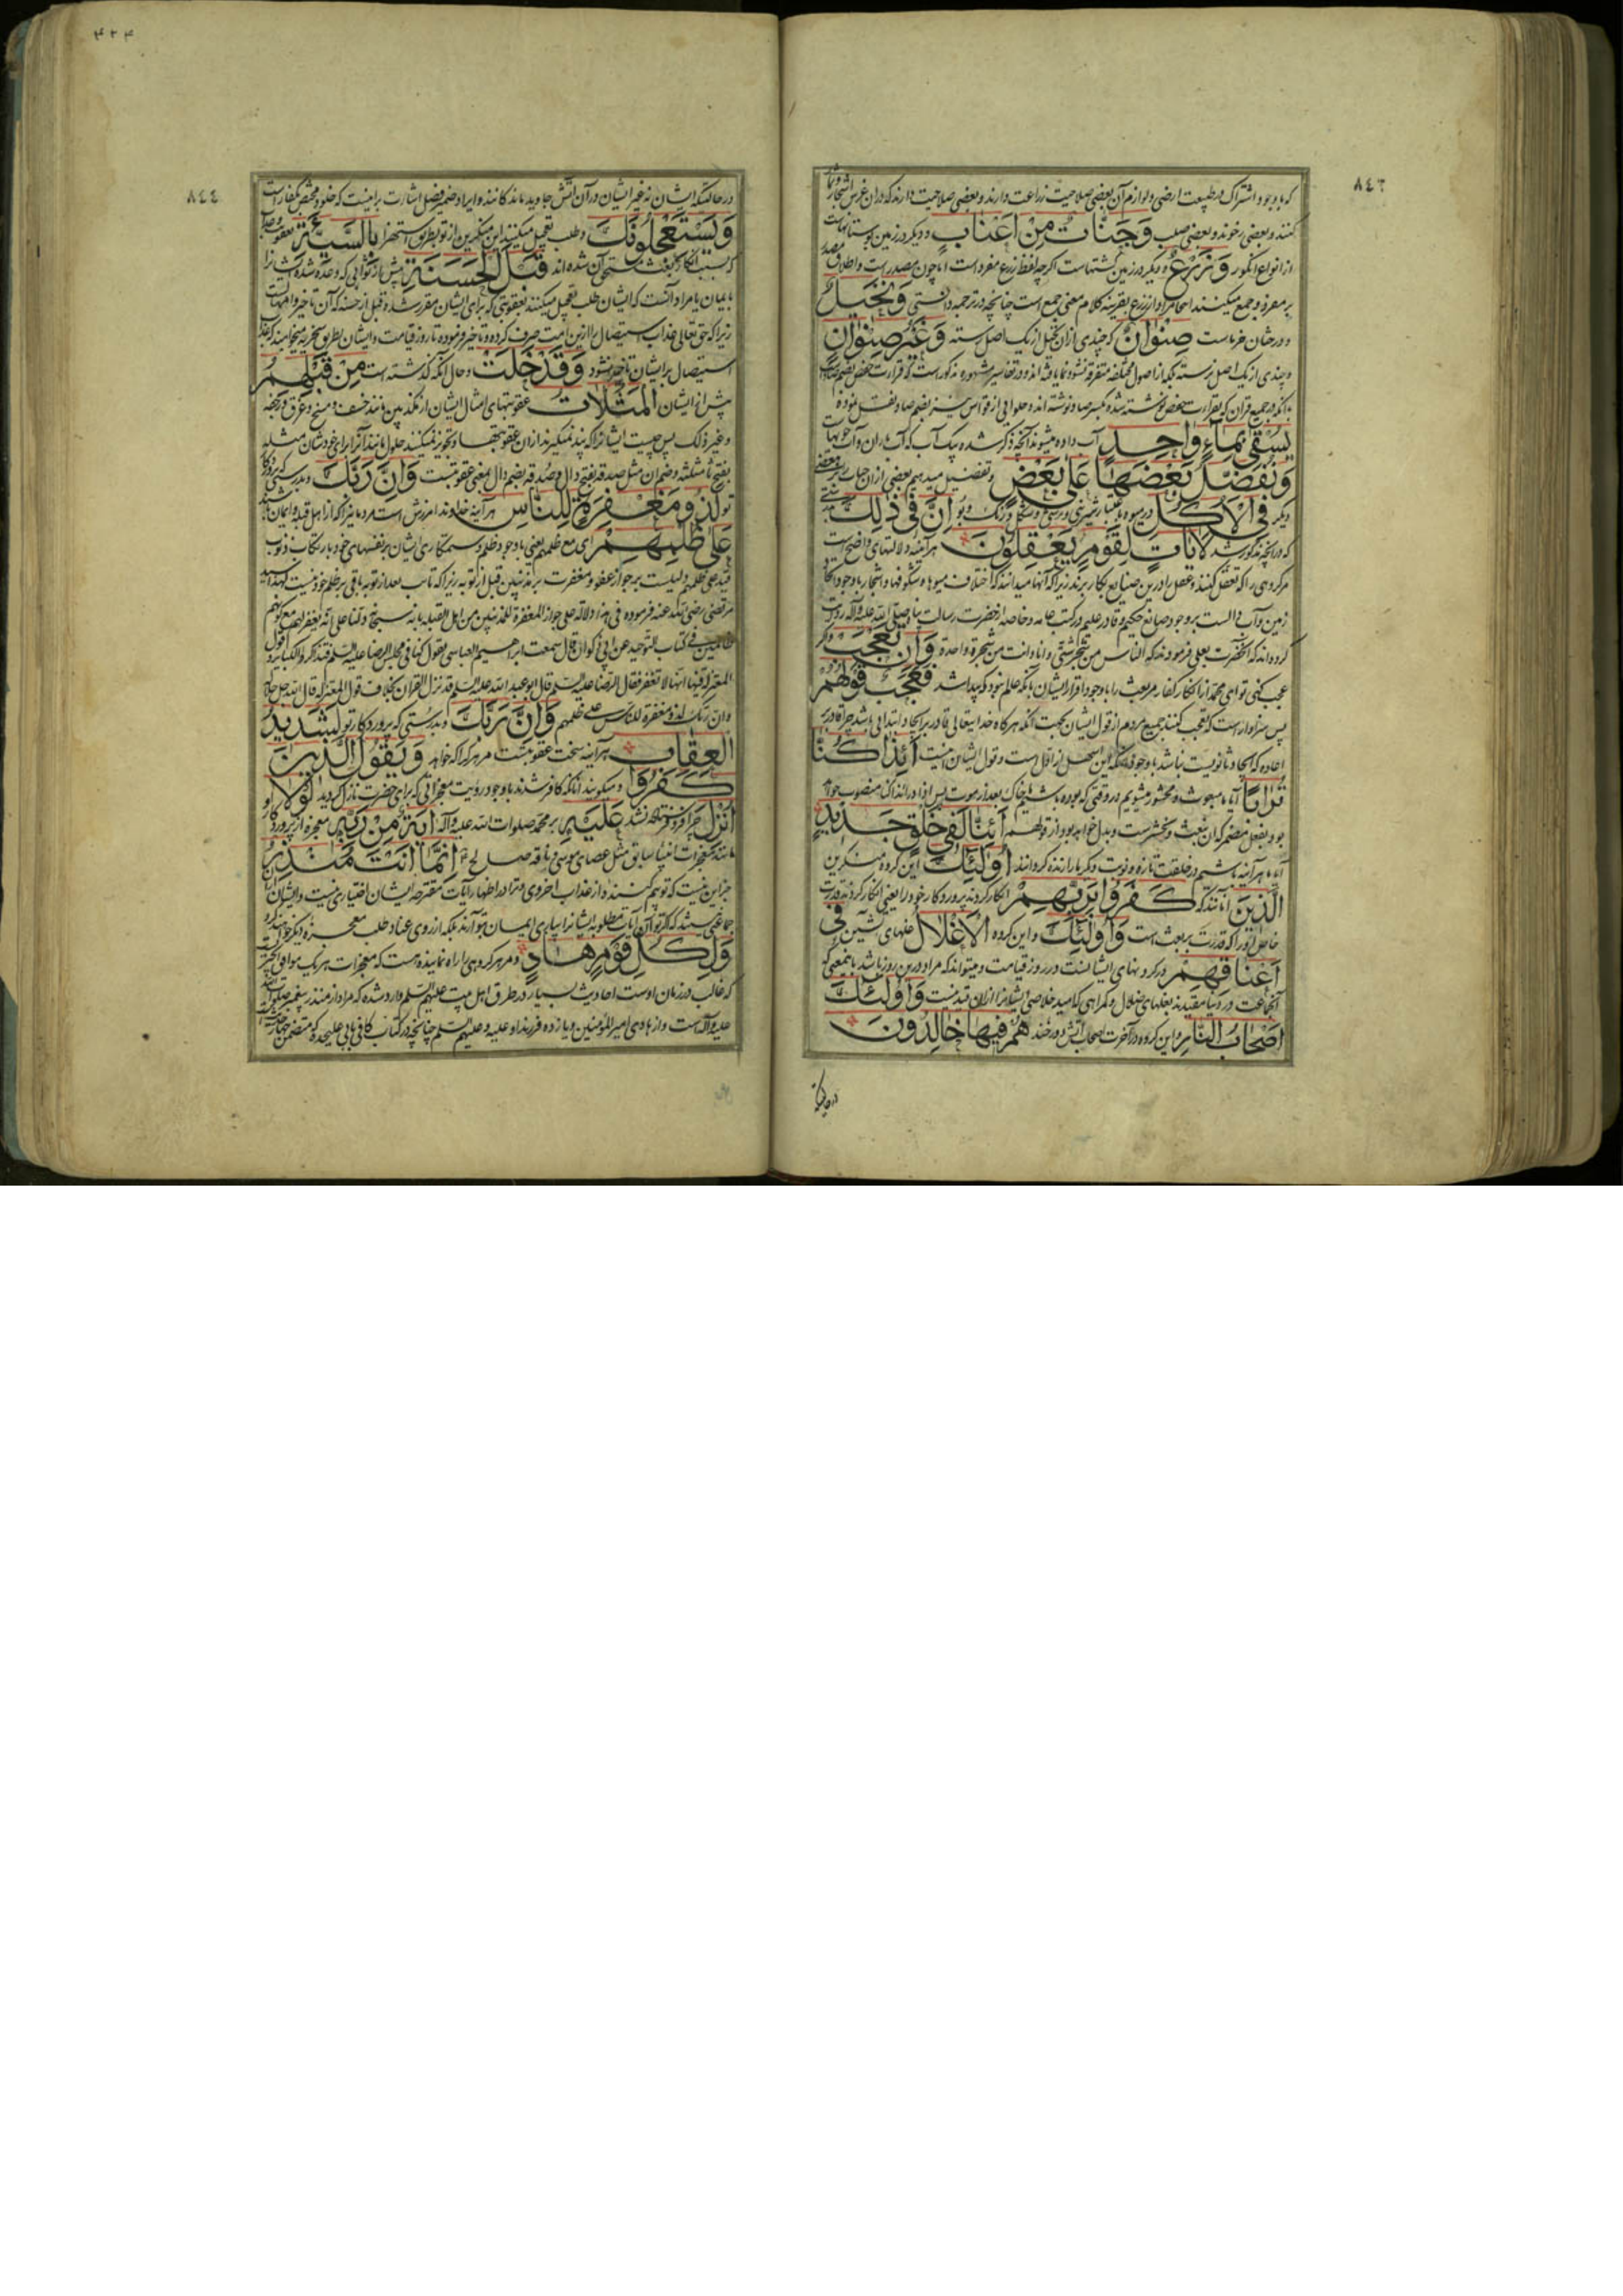 ٨٤٣
که با وجود اشتراک در طبیعت ارضی و لوازم آن بعضی صلاحیت زراعت دارند و بعضی صلاحیت دارند که در آن غرس اشجار
کنند و بعضی رخوند و بعضی صلب وَجَنَّاتٌ مِنْ أَعْنَابٍ و دیگر در زمین بوستانهاست
از انواع انگور وَزَرْعٌ و دیگر در زمین کشتهاست اگرچه لفظ زرع مفرد است اما چون مصدر است و اطلاق مصدر
بر مفرد و جمع میکنند اینجا مراد از زرع بقرینه کلام معنی جمع است چنانچه در ترجمه دانستی وَنَخِيلٌ
و درختان خرماست صِنْوَانٌ که چندی از ان نخیل از یک اصل رسته وَغَيْرُ صِنْوَانٍ
و چندی از یک اصل نرسته بلکه از اصول مختلفه متفرقه نشو و نما یافته اند و در تفاسیر مشهوره مذکور است که قرائت حفص بضم صاد است
با آنکه در جمیع قرآن که بقرائت حفص نوشته شده بکسر صاد نوشته اند و حلوانی از قواس نیز بضم صاد نقل نموده
يُسْقَى بِمَاءٍ وَاحِدٍ آب داده میشوند آنچه ذکر شده بیک آب که آب باران و آب جویهاست
وَنُفَضِّلُ بَعْضَهَا عَلَى بَعْضٍ و تفضیل میدهیم بعضی از ان جنات را بر بعضی
دیگر فِي الْأُكُلِ در میوه باعتبار شیرینی و ترشی و شکل و رنگ و بو إِنَّ فِي ذَلِكَ بدرستی
که در آنچه مذکور شد لَآيَاتٍ لِقَوْمٍ يَعْقِلُونَ هر آینه دلالتهای واضح است
مر گروهی را که تعقل کنند و عقل را درین صنایع بکار برند زیرا که آنها میدانند که اختلاف میوها و شکوفها و اشجار با وجود اتحاد
زمین و آب دالست بر وجود صانع حکیم و قادر علیم و در کتب عامه و خاصه از حضرت رسالت پناه صلی الله علیه و آله روایت
کرده اند که آنحضرت بعلی فرمودند که الناس من شجر شتی و انا و انت من شجرة واحدة وَإِنْ تَعْجَبْ و اگر
عجب کنی تو ای محمد از انکار کفار مر بعث را با وجود اقرار ایشان بآنکه عالم نبود و پیدا شد فَعَجَبٌ قَوْلُهُمْ
پس سزاوار است که تعجب کنند جمیع مردم از قول ایشان بجهت آنکه هر گاه خدایتعالی قادر بر ایجاد ابتدائی باشد چرا قادر بر
اعاده که ایجاد ثانویست نباشد با وجود آنکه این اسهل از اول است و قول ایشان اینست أَئِذَا كُنَّا
تُرَابًا آیا ما مبعوث و محشور میشویم در وقتی که بوده باشیم خاک بعد از موت پس اذا در ائذا کنا منصوب خواهد
بود بفعل مضمر که ان نبعث و نحشر است و بدل خواهد بود از قولهم أَئِنَّا لَفِي خَلْقٍ جَدِيدٍ
آیا ما هر آینه باشیم در خلقت تازه و نوبت دیگر ما را زنده گردانند أُولَئِكَ این گروه منکرین
الَّذِينَ آنانند که كَفَرُوا بِرَبِّهِمْ انکار کردند پروردگار خود را یعنی انکار کردند قدرت
کامل او را که قدرت بر بعث است وَأُولَئِكَ و این گروه الْأَغْلَالُ غلهای آتشین فِي
أَعْنَاقِهِمْ در گردنهای ایشانست در روز قیامت و میتواند که مراد درین روز باشد باینمعنی که
آنجماعت در دنیا مقیدند بغلهای ضلال و گمراهی که امید خلاصی ایشانرا از ان قید نیست وَأُولَئِكَ
أَصْحَابُ النَّارِ و این گروه در آخرت اصحاب آتش دوزخند هُمْ فِيهَا خَالِدُونَ
در حالتیکه
٤٢٤
٨٤٤
در حالتیکه ایشان نه غیر ایشان در آن آتش جاوید ماندگانند و ایراد ضمیر فصل اشارت براینست که خلود مختص بکفار است
وَيَسْتَعْجِلُونَكَ و طلب تعجیل میکنند این منکرین از تو بطریق استهزا بِالسَّيِّئَةِ بعقوبتی
که بسبب انکار بعث مستحق آن شده اند قَبْلَ الْحَسَنَةِ پیش از ثوابی که وعده شده ایشانرا
بایمان یا مراد آنست که ایشان طلب تعجیل میکنند بعقوبتی که برای ایشان مقرر شده قبل از حسنه که آن تاخیر و امهالست
زیرا که حق تعالی عذاب استیصال را ازین امت صرف کرده و تاخیر فرموده تا روز قیامت و ایشان بطریق سخریه میخواهند که عذاب
استیصال بر ایشان تاخیر نشود وَقَدْ خَلَتْ و حال آنکه گذشته است مِنْ قَبْلِهِمُ
پیش از ایشان الْمَثُلَاتُ عقوبتهای امثال ایشان از مکذبین مانند خسف و مسخ و غرق و رجفه
و غیر ذلک پس چیست ایشانرا که پند نمیگیرند از ان عقوبتها و تجویز نمیکنند حلول مانند آنرا برای خودشان مثله
بفتح ثا مثلثه و ضم ان مثل صدقه بفتح دال و صدقه بضم دال بمعنی عقوبتست وَإِنَّ رَبَّكَ و بدرستی که پروردگار
تو لَذُو مَغْفِرَةٍ لِلنَّاسِ هر آینه خداوند امرزش است مردمانیرا که از اهل قبله و ایمان باشند
عَلَى ظُلْمِهِمْ ای مع ظلمهم یعنی با وجود ظلم و ستمکاری ایشان بر نفسهای خود بارتکاب ذنوب
قید علی ظلمهم دلیلست بر جواز عفو و مغفرت بر مذنبین قبل از توبه زیرا که تائب بعد از توبه باقی بر ظلم خود نیست لهذا سید
مرتضی رضی الله عنه فرموده فی هذا دلالة علی جواز المغفرة للمذنبین من اهل القبلة لانه سبحانه دلنا علی انه یغفر لهم مع کونهم
ظالمین فی کتاب التوحید عن ابی ذکوان قال سمعت ابراهیم العباسی یقول کنا فی مجلس الرضا علیه السلم فتذاکروا الکبائر و قول
المعتزلة فیها انها لا تغفر فقال الرضا علیه السلم قال ابو عبد الله علیه السلم قد نزل القران بخلاف قول المعتزلة قال الله جل جلاله
و ان ربک لذو مغفرة للناس علی ظلمهم وَإِنَّ رَبَّكَ و بدرستی که پروردگار تو لَشَدِيدُ
الْعِقَابِ هر آینه سخت عقوبتست مر هر کرا که خواهد وَيَقُولُ الَّذِينَ
كَفَرُوا و میگویند آنانکه کافر شدند با وجود رؤیت معجزاتی که برای حضرت نازل گردید لَوْلَا
أُنْزِلَ چرا فرو فرستاده نشد عَلَيْهِ بر محمد صلوات الله علیه و آله آيَةٌ مِنْ رَبِّهِ معجزه از پروردگار او
مانند معجزات انبیا سابق مثل عصای موسی و ناقه صالح إِنَّمَا أَنْتَ مُنْذِرٌ
جز این نیست که تو بیم کننده از عذاب اخروی و ترا در اظهار آیات مقترحه ایشان اختیاری نیست و ایشان از ان
جماعتی نیستند که اگر تو آن آیات مطلوبه ایشانرا بیاری ایمان بتو آرند بلکه از روی عناد طلب معجزه دیگر خواهند کرد
وَلِكُلِّ قَوْمٍ هَادٍ و مر هر گروهی را راه نماینده هست که معجزات هر یک موافق
که غالب در زمان اوست احادیث بسیار در طرق اهل بیت علیهم السلم وارد شده که مراد از منذر پیغمبر صلوات الله
علیه و آله است و از هادی امیر المؤمنین و یازده فرزند او علیه و علیهم السلم چنانچه در کتاب کافی بابی علیحده که متضمن